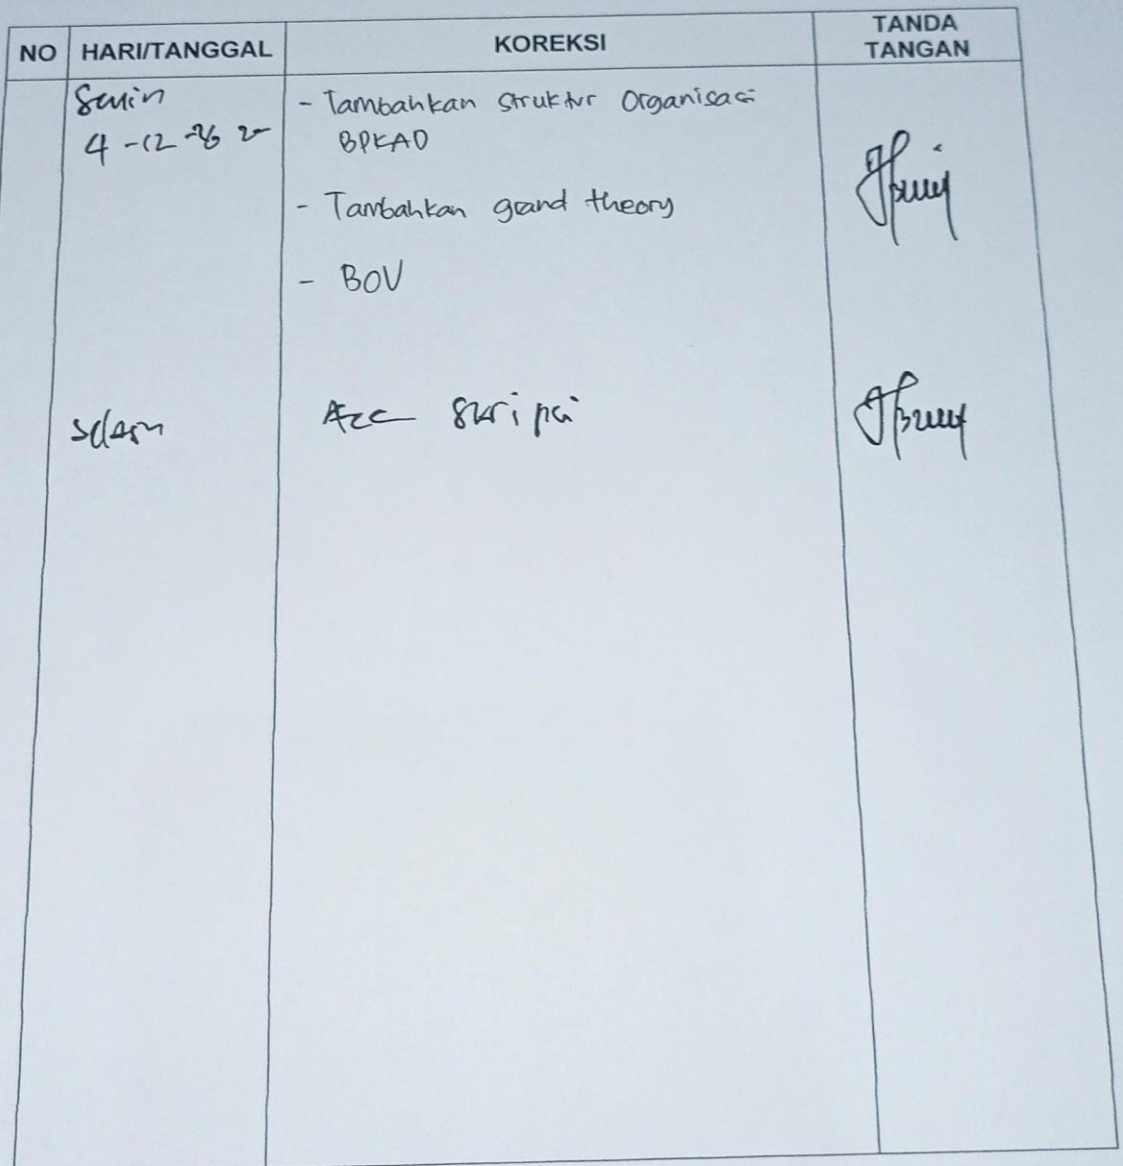 NO HARI/TANGGAL KOREKSI TANDA TANGAN
Senin
4 -12
- Tambahkan Struktur Organisasi
BPKAD
- Tambahkan grand theory
- BOV
Selasa
Acc Skripsi